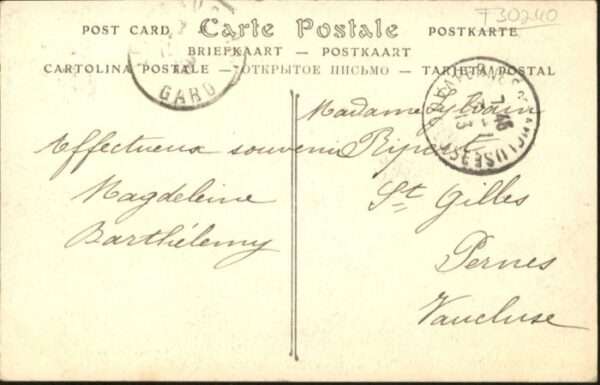 T30240
POST CARD Carte Postale POSTKARTE
BRIEFKAART — POSTKAART
CARTOLINA POSTALE — ОТКРЫТОЕ ПИСЬМО — TARJETA POSTAL
GARD
VAUCLUSE
7 45
13
Madame Sylvain
Ripert
St Gilles
Pernes
Vaucluse
Affectueux souvenir
Magdeleine
Barthélemy